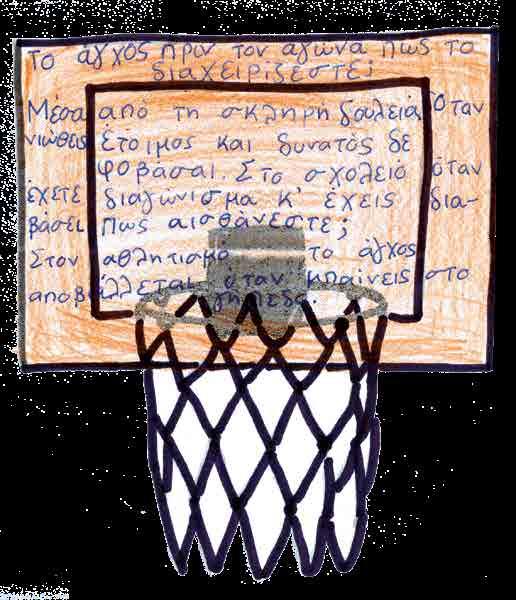 Το άγχος πριν τον αγώνα πως το
διαχειρίζεστε;
Μέσα από τη σκληρή δουλειά. Όταν
νιώθεις έτοιμος και δυνατός δε
φοβάσαι. Στο σχολειό όταν
έχετε διαγώνισμα κ' έχεις δια-
βάσει πως αισθάνεστε;
Στον αθλητισμό το άγχος
αποβάλλεται όταν μπαίνεις στο
γήπεδο.